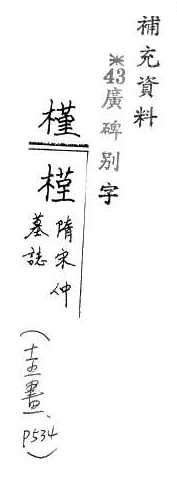 補充資料
※43廣碑别字
槿
隋宋仲
墓誌
(十五畫、P534)